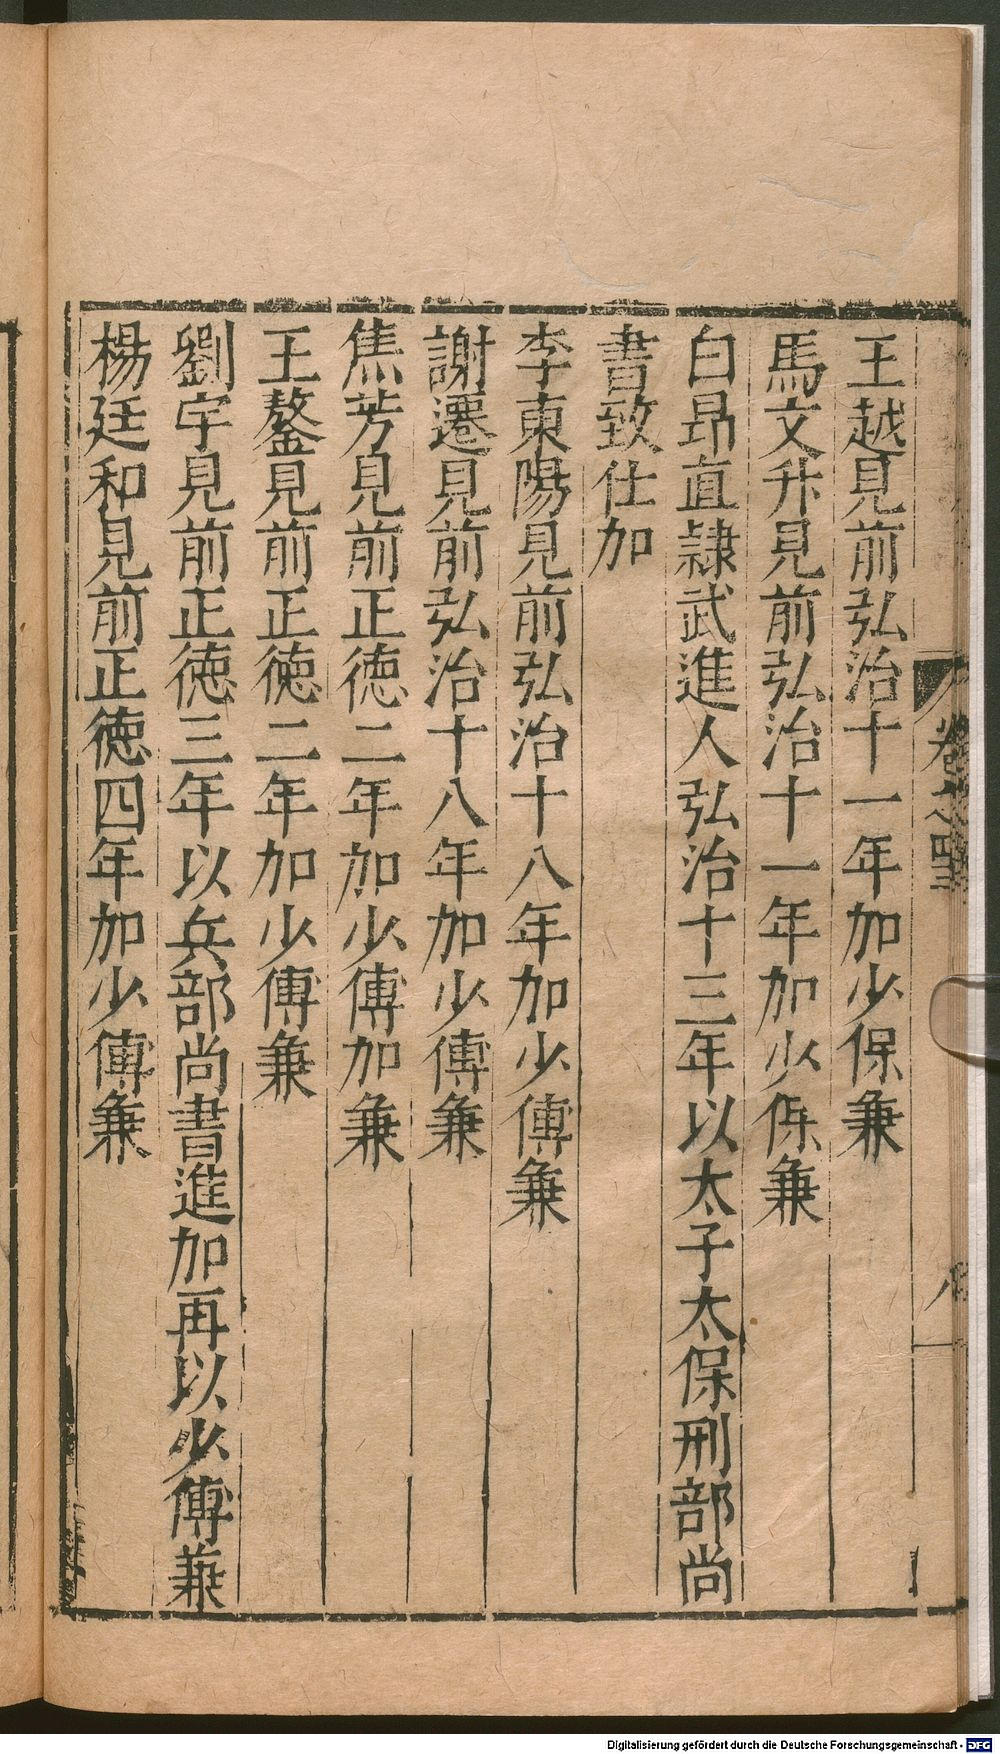 王越見前弘治十一年加少保兼
馬文升見前弘治十一年加少保兼
白昻直隷武進人弘治十三年以太子太保刑部尚
書致仕加
李東陽見前弘治十八年加少傅兼
謝遷見前弘治十八年加少傅兼
焦芳見前正徳二年加少傅加兼
王鏊見前正徳二年加少傅兼
劉宇見前正徳三年以兵部尚書進加再以少傅兼
楊廷和見前正徳四年加少傅兼
卷之四
Digitalisierung gefördert durch die Deutsche Forschungsgemeinschaft - DFG